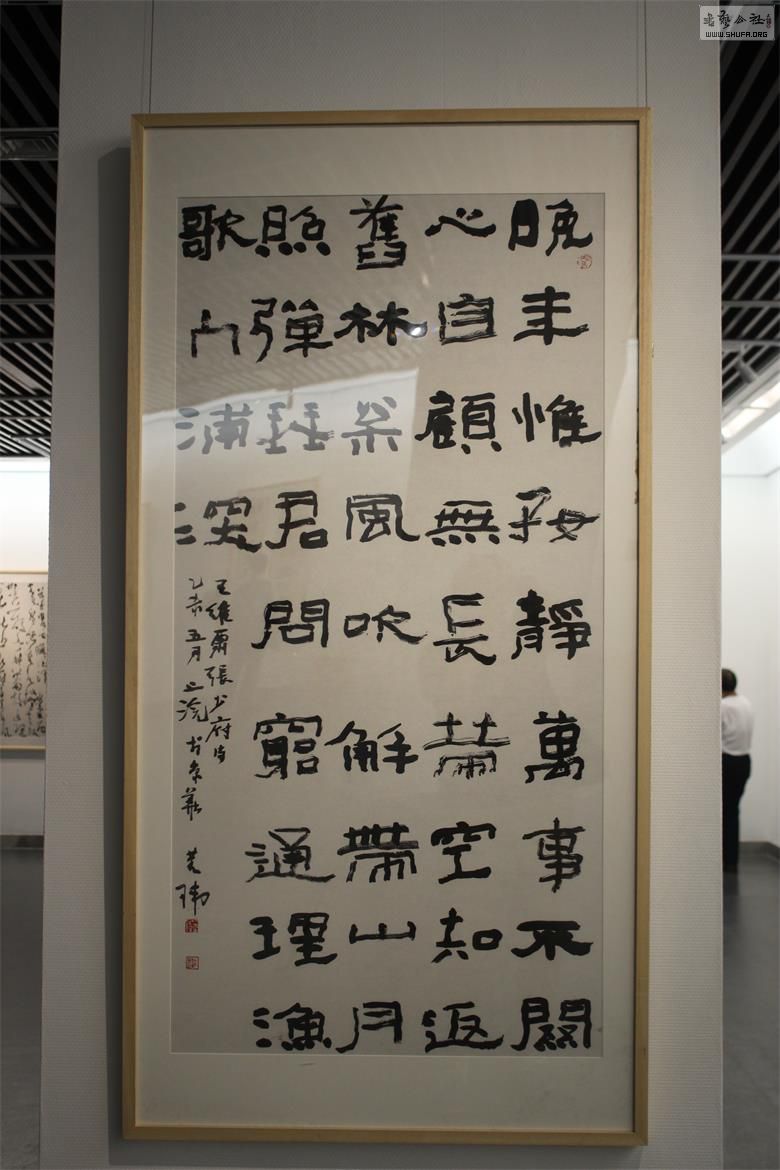 晚年惟好靜萬事不關
心自顧無長策空知返
舊林松風吹解帶山月
照彈琴君問窮通理漁
歌入浦深
王維酬張少府詩
五月上浣於京華
瑋
書藝公社
WWW.SHUFA.ORG